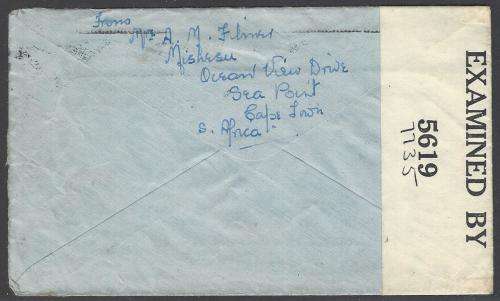 From
A. M.
Ocean View Drive
Sea Point
Cape Town
S. Africa.
EXAMINED BY
5619
7735